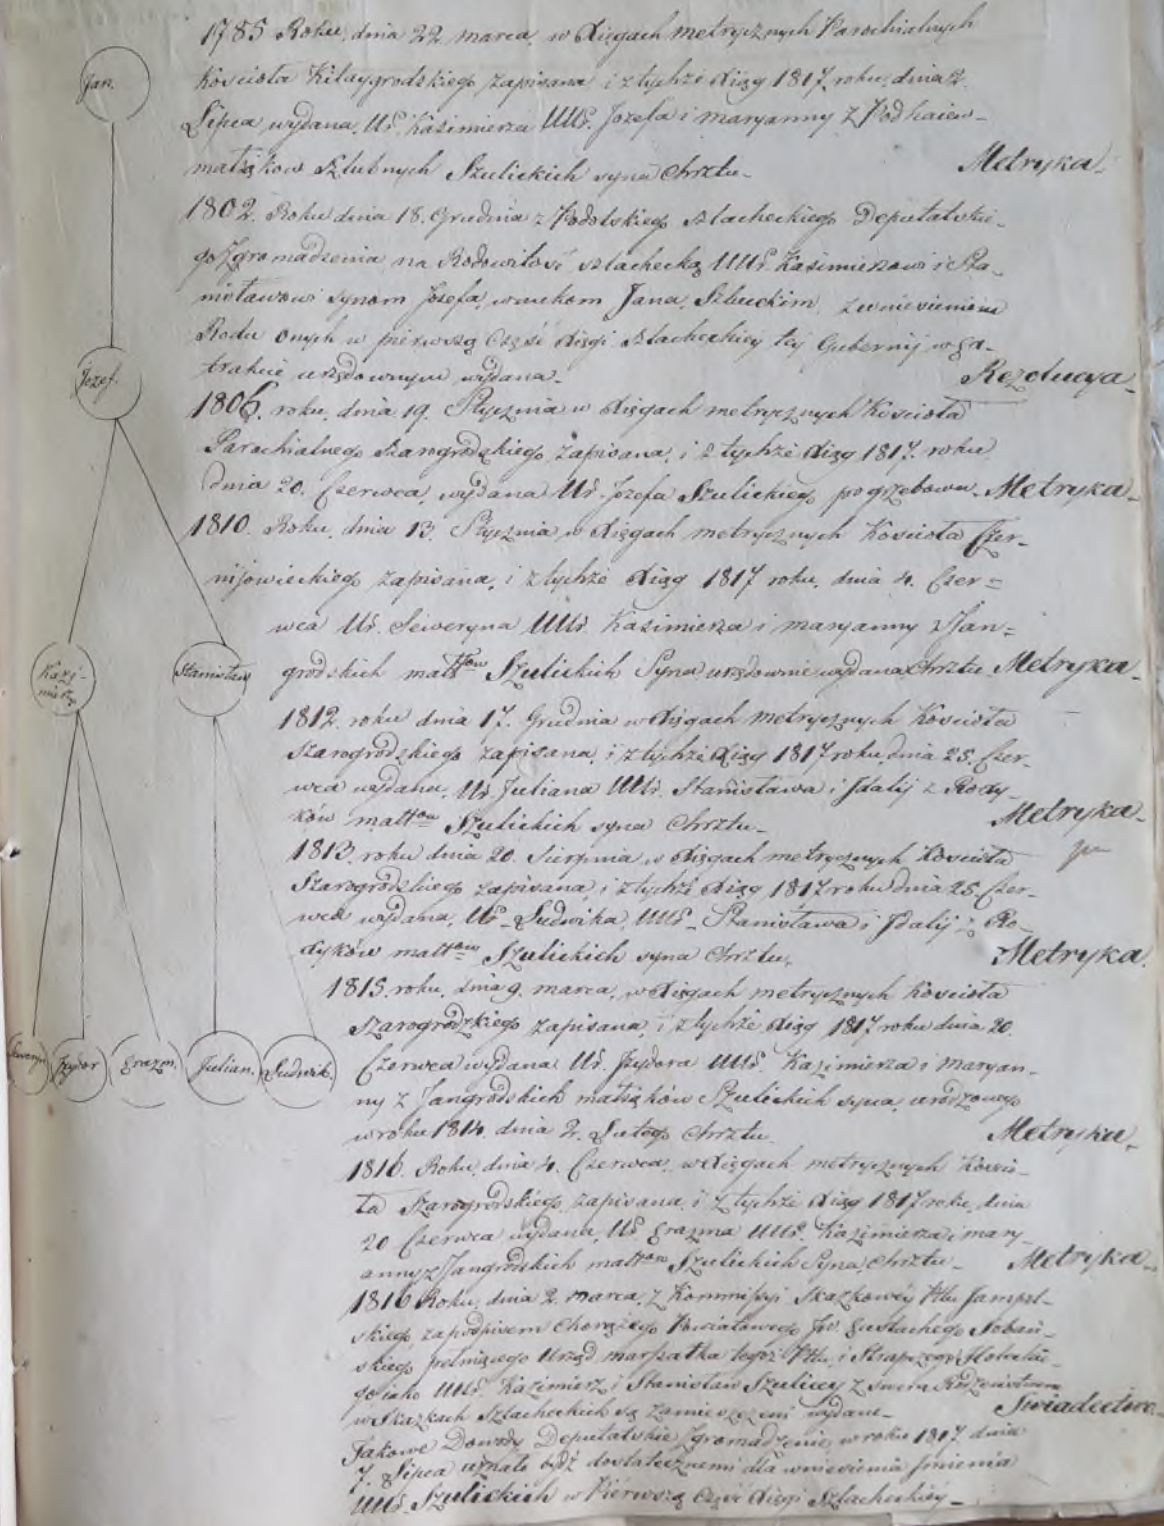 1785 Roku, dnia 22 marca, w xięgach metrycznych Parochialnych
Jan.
Kościoła Kitaygrodzkiego zapisana, i z tychże xiąg 1817 roku, dnia 2
Lipca wydana, Ur. Kazimierza UUr. Jozefa i maryanny z Podhaiew-
małżąkow szlubnych Szulickich syna Chrztu- Metryka.
1802. Roku dnia 18. Grudnia z Podolskiego szlacheckiego Deputatskie-
go Zgromadzenia na Rodowitość szlachecką UUr. Kazimierzowi i Sta-
nisławowi synom Jozefa, wnukom Jana, Szulickim, z wniesieniem
Rodu onych w pierwszą Część xięgi szlacheckiey tey Gubernij w
trakcie urzędownym wydana- Rezolucya.
Jozef.
1806. roku, dnia 19. Stycznia w xięgach metrycznych Kościoła
Parochialnego Szarogrodzkiego zapisana, i z tychże xiąg 1817. roku
dnia 20. Czerwca, wydana Ur. Jozefa Szulickiego pogrzebowa. Metryka.
1810. Roku, dnia 13. Stycznia w xięgach metrycznych Kościoła Czer-
nijowieckiego zapisana, i z tychże xiąg 1817 roku, dnia 4. Czer=
wca Ur. Seiweryna UUr. Kazimierza i maryanny z Jan=
grodzkich małżow Szulickich Syna urzędownie wydana Chrztu. Metryka.
Kazi-
mierz
Stanisław
1812. roku dnia 17. Grudnia w xięgach metrycznych Kościoła
Szarogrodzkiego zapisana, i z tychże xiąg 1817 roku dnia 25. Czer-
wca wydana, Ur. Juliana UUr. Stanisława i Jdalij z Rody-
ków małżow Szulickich syna Chrztu- Metryka.
1813. roku dnia 20. Sierpnia, w xięgach metrycznych Kościoła
Szarogrodzkiego zapisana, i z tychże xiąg 1817 roku dnia 25. Czer-
wca wydana, Ur. Ludwika, UUr. Stanisława i Jdalij z Ro-
dyków małżow Szulickich syna Chrztu. Metryka.
1815. roku, dnia 9. marca, w xięgach metrycznych Kościoła
Szarogrodzkiego zapisana, i z tychże xiąg 1817 roku dnia 20.
Seweryn
Jzydor
Erazm.
Julian.
Ludwik.
Czerwca wydana Ur. Jzydora UUr. Kazimierza i maryan-
ny z Jangrodzkich małżąków Szulickich syna, urodzonego
w roku 1814. dnia 2. Lutego Chrztu. Metryka.
1816. Roku, dnia 4. Czerwca, w xięgach metrycznych Kościo-
ła Szarogrodzkiego, zapisana, i z tychże xiąg 1817 roku, dnia
20 Czerwca wydana, Ur. Erazma UUr. Kazimierza i mary-
anny z Jangrodzkich małżow Szulickich Syna, Chrztu- Metryka.
1816 Roku, dnia 2. marca, z Kommissyi Skazkowey Pttu Jampol-
skiego, zapodpisem Chorążego Powiatowego Jw. Eustachego Sobań-
skiego, pełniącego Urząd marszałka tegoż Pttu, i
go iako UUr. Kazimierz i Stanisław Szuliccy z swem Rodzeństwem
w Skazkach Szlacheckich są zamieszczeni wydane- Swiadectwo.
Jakowe Dowody Deputatskie Zgromadzenie, w roku 1817. dnia
7. Lipca uznało bydź dostatecznemi dla wniesienia Jmienia
UUr. Szulickich w Pierwszą część xięgi Szlacheckiey-